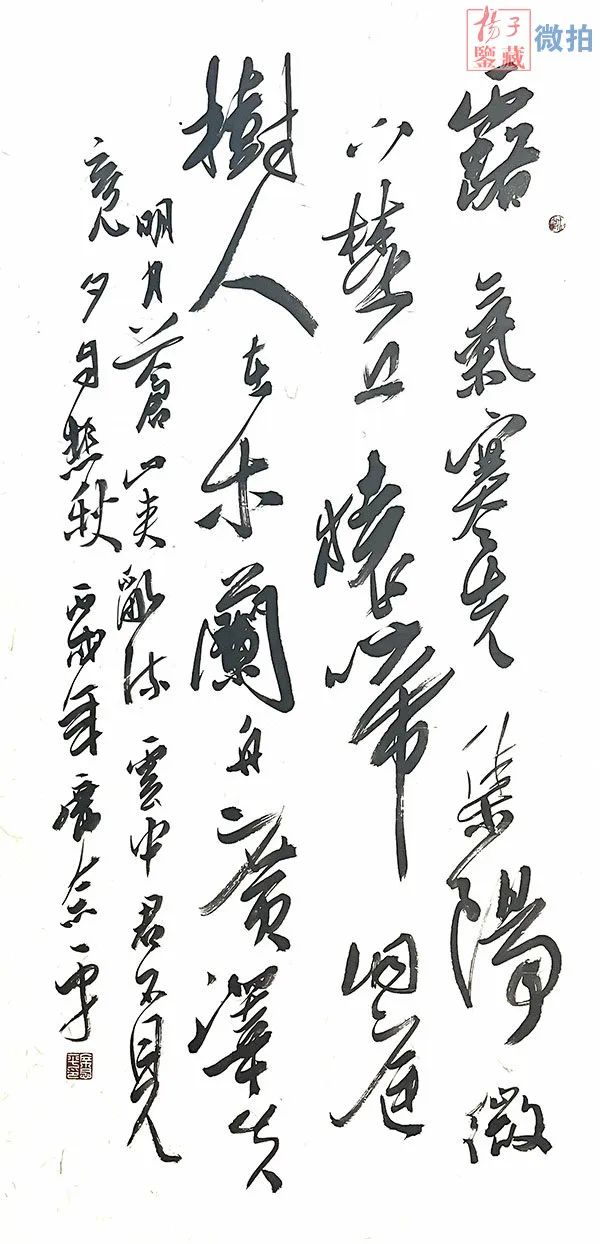 楊子
鑒藏
微拍
露氣寒光集陽微
下楚丘猿啼洞庭
樹人在木蘭舟廣澤生
明月蒼山夾亂流雲中君不見
竟夕自悲秋 丙戌年